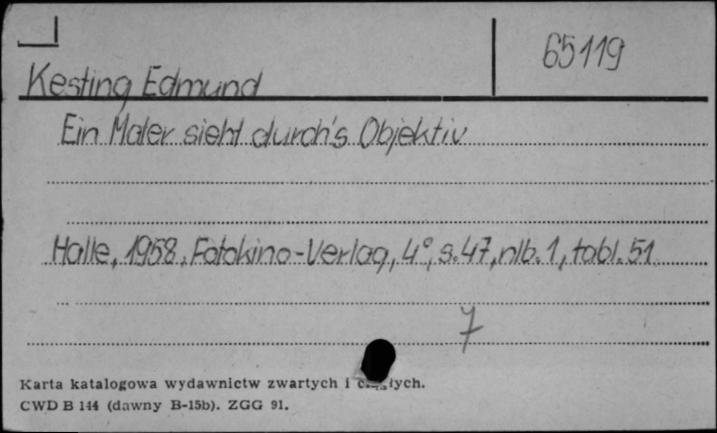 65119
Kesting Edmund
Ein Maler sieht durch's Objektiv
Halle, 1958, Fotokino-Verlag, 4°, s. 47, nlb. 1, tabl. 51
7
Karta katalogowa wydawnictw zwartych i
CWD B 144 (dawny B-15b). ZGG 91.